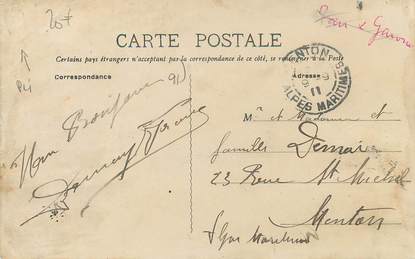 20€
Pli
CARTE POSTALE
Certains pays étrangers n'acceptant pas la correspondance de ce côté, se renseigner à la Poste
Correspondance
Adresse
MENTON
11
ALPES MARITIMES
Mon Bonjour
Mr et Madame et
familles Demai
23 Rue St Michel
Menton
Alpes Maritimes